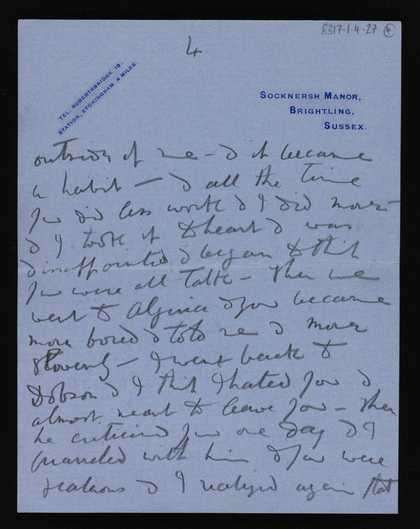 8317-1-4-27 4
4
TEL. ROBERTSBRIDGE 19.
STATION, ETCHINGHAM, 4 MILES.
SOCKNERSH MANOR,
BRIGHTLING,
SUSSEX.
outside of me – & it became
a habit – & all the time
you did less work & I did more –
& I took it to heart & was
disappointed & began to think
you were all talk – then we
went to Algeria & you became
more bored & told me & more
slovenly – I went back to
Dobson & I thk I hated you &
almost meant to leave you – then
he criticised you one day & I
quarreled with him & you were
jealous & I realized again that